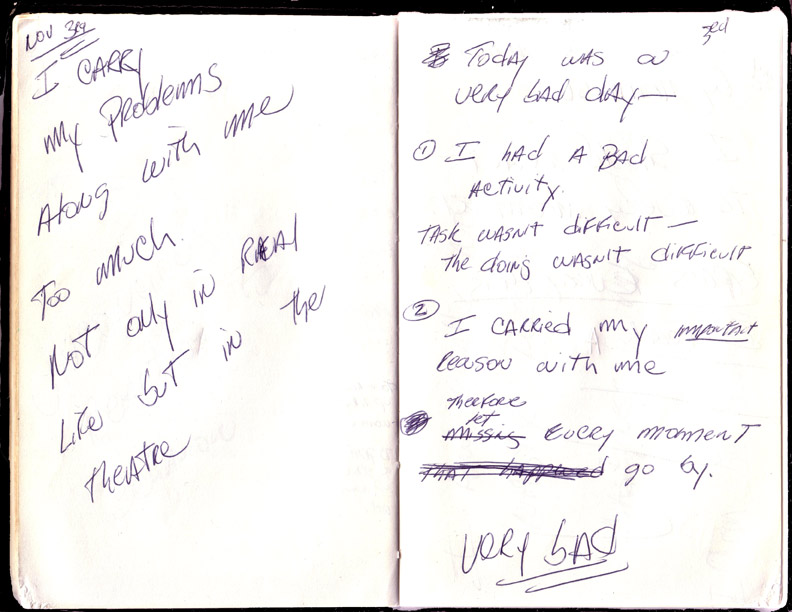 NOV 3rd
I CARRY
my Problems
Along with me
Too much.
Not only in REAL
Life but in the
theatre
3rd
Today was a
very bad day—
① I HAD A BAD
Activity.
TASK WASN'T difficult —
the doing WASN'T difficult
② I CARRIED my important
reason with me
therefore
let
missing EVERY MOMENT
THAT happened go by.
VERY bAd